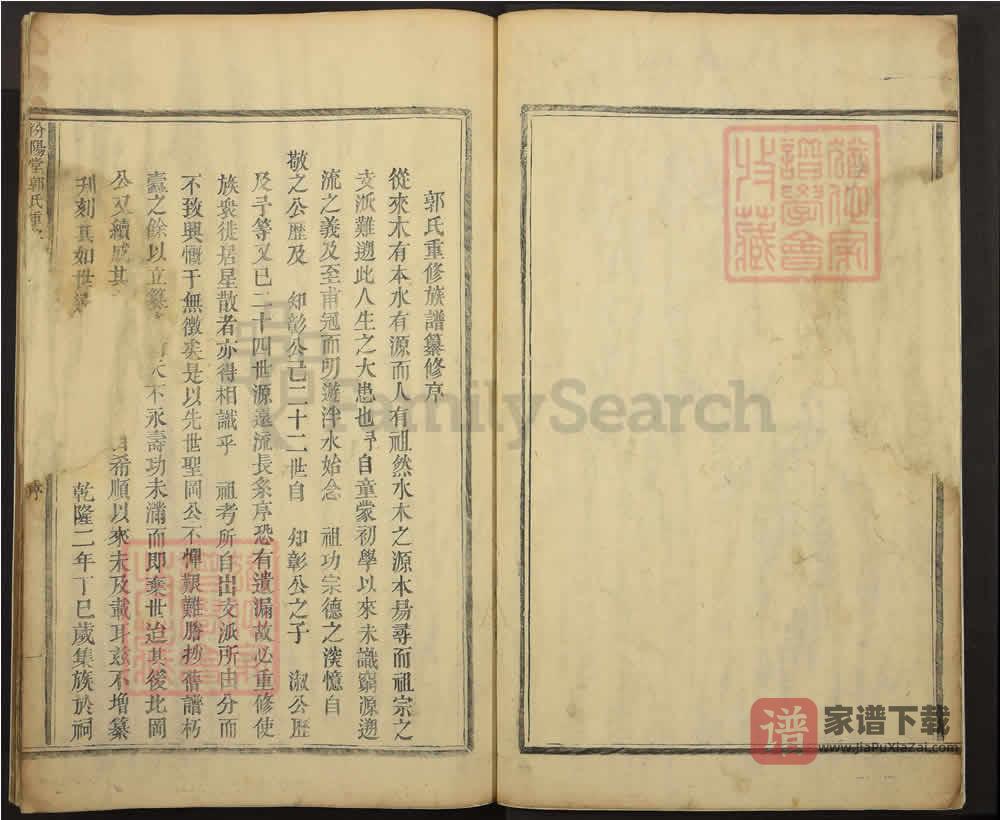 郭氏重修族譜纂修序
從來木有本水有源而人有祖然水木之源本易尋而祖宗之
支派難遡此人生之大患也予自童蒙初學以來未識窮源遡
流之義及至甫冠而朙遊泮水始念 祖功宗德之深憶自
敬之公歷及 知彰公已二十二世自 知彰公之子 淑公歷
及予等又已二十四世源遠流長糸序恐有遺漏故必重修使
族衆徙居星散者亦得相識乎 祖考所自出支派所由分而
不致興慨于無徵矣是以先世聖岡公不憚艱難謄抄舊譜朽
蠹之餘以立纂 天不永壽功未滿而即棄世迨其後北岡
公又續成其 希順以來未及載耳茲不增纂
刋刻真如世 乾隆二年丁巳歲集族於祠
汾陽堂郭氏重
序
譜學會
收藏
FamilySearch
谱
家谱下载
www.JiaPuXiaZai.com